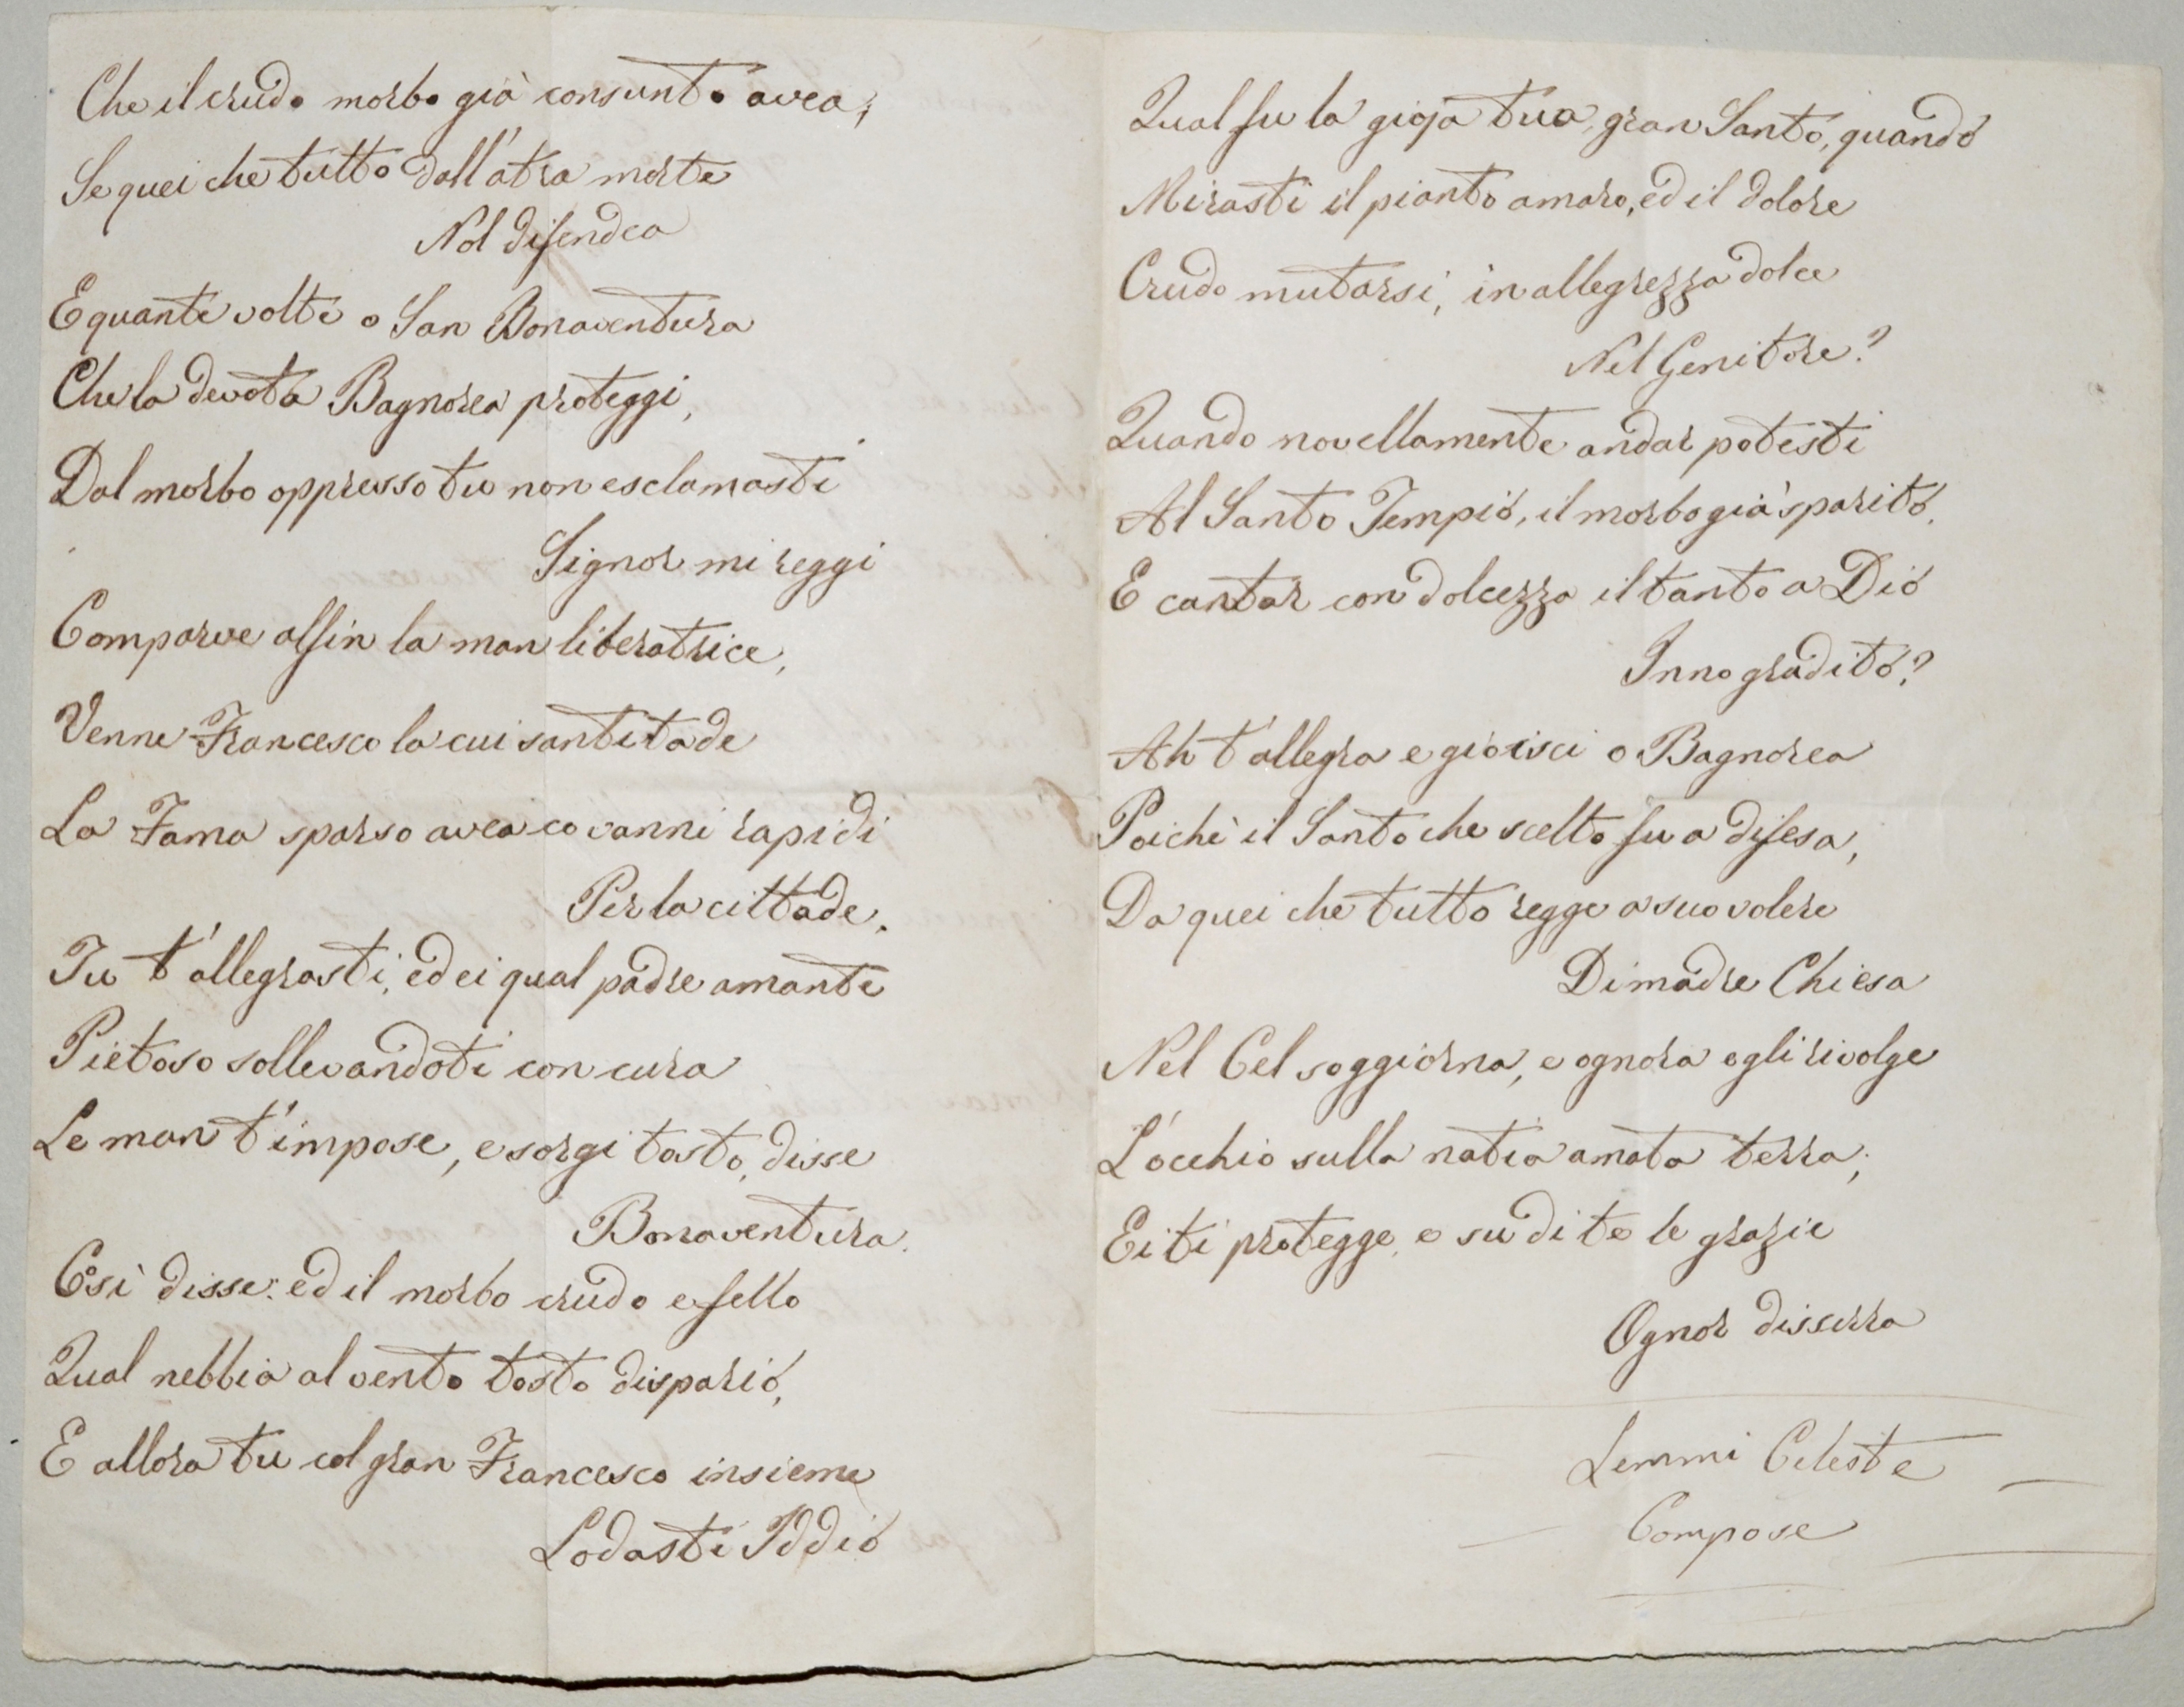 Che il crudo morbo già consunto avea;
Se quei che tutto dall'atra morte
Nol difendea
E quante volte o San Bonaventura
Che la devota Bagnorea proteggi,
Dal morbo oppresso tu non esclamasti
Signor mi reggi
Comparve alfin la man liberatrice,
Venne Francesco la cui santitade
La Fama sparso avea co vanni rapidi
Per la cittade.
Tu t'allegrasti, ed ei qual padre amante
Pietoso sollevandoti con cura
Le man t'impose, e sorgi tosto, disse
Bonaventura.
Così disse: ed il morbo crudo e fello
Qual nebbia al vento tosto disparió,
E allora tu col gran Francesco insieme
Lodasti Iddio
Qual fu la gioja tua, gran Santo, quando
Mirasti il pianto amaro, ed il dolore
Crudo mutarsi, in allegrezza dolce
Nel Genitore?
Quando novellamente andar potesti
Al Santo Tempio, il morbo già sparito,
E cantar con dolcezza il tanto a Dio
Inno gradito?
Ah t'allegra e gioisci o Bagnorea
Poichè il Santo che scelto fu a difesa,
Da quei che tutto regge a suo volere
Di madre Chiesa
Nel Cel soggiorna, e ognora egli rivolge
L'occhio sulla natia amata terra;
Ei ti protegge, e su di te le grazie
Ognor disserra
Lemmi Celeste
Compose